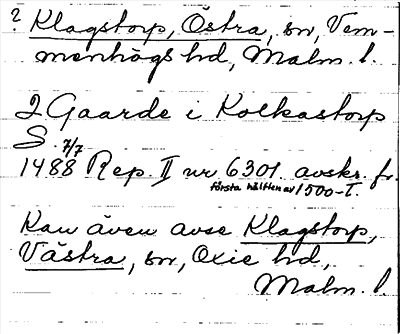 ? Klagstorp, Östra, sn, Vem-
menhögs hd, Malm. l.
2 Gaarde i Kolkastorp
S. 7/7
1488 Rep. II nr 6301. avskr. fr.
första hälften av 1500-t.
Kan även avse Klagstorp,
Västra, sn, Oxie hd,
Malm. l.